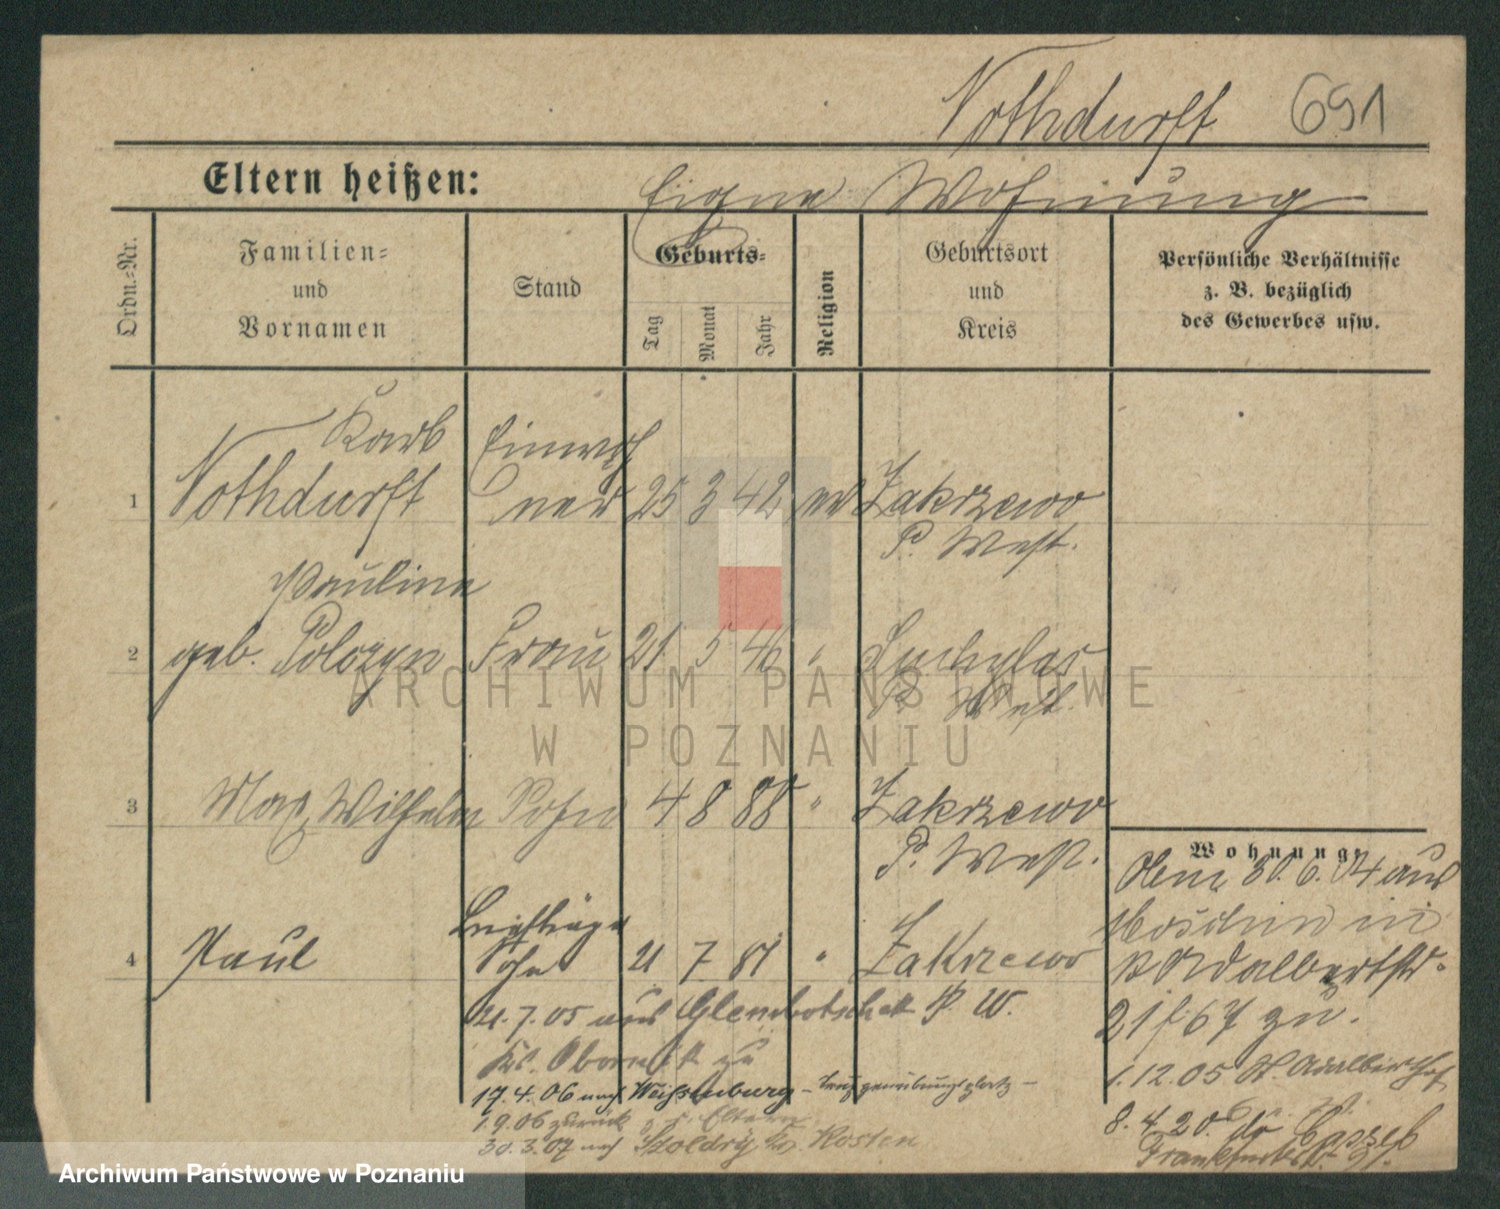 Nothdurft 691
Eltern heißen: Eigne Wohnung
Ordn.-Nr.
Familien-
und
Vornamen
Stand
Geburts-
Tag
Monat
Jahr
Religion
Geburtsort
und
Kreis
Persönliche Verhältnisse
z. B. bezüglich
des Gewerbes usw.
Karl Einwoh
1 Nothdurft ner 25 3 42 ev Zakrzewo
P. West.
Pauline
2 geb. Polozyn Frau 21 5 46 "
P. West.
3 Max Wilhelm Sohn 4 8 88 " Zakrzewo
P. West.
Wohnung:
30.6.04 aus
Moschin in
4 Paul Sohn 21 7 81 " Zakrzewo
St Adalbertstr.
P. W.
21 f. 67 zu.
21.7.05 aus
Kr. Obornik zu
1.12.05 St Adalberthof
17.4.06 nach Weissenburg – Truppenübungsplatz –
1.9.06 zurück z. d. Eltern
8.4.20.
30.3.07 nach Kr. Kosten
ARCHIWUM PAŃSTWOWE
W POZNANIU
Archiwum Państwowe w Poznaniu